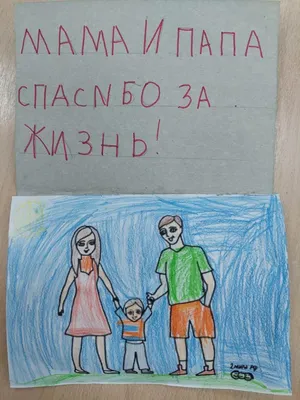 МАМА И ПАПА
СПАСNБО ЗА
ЖИЗНЬ!